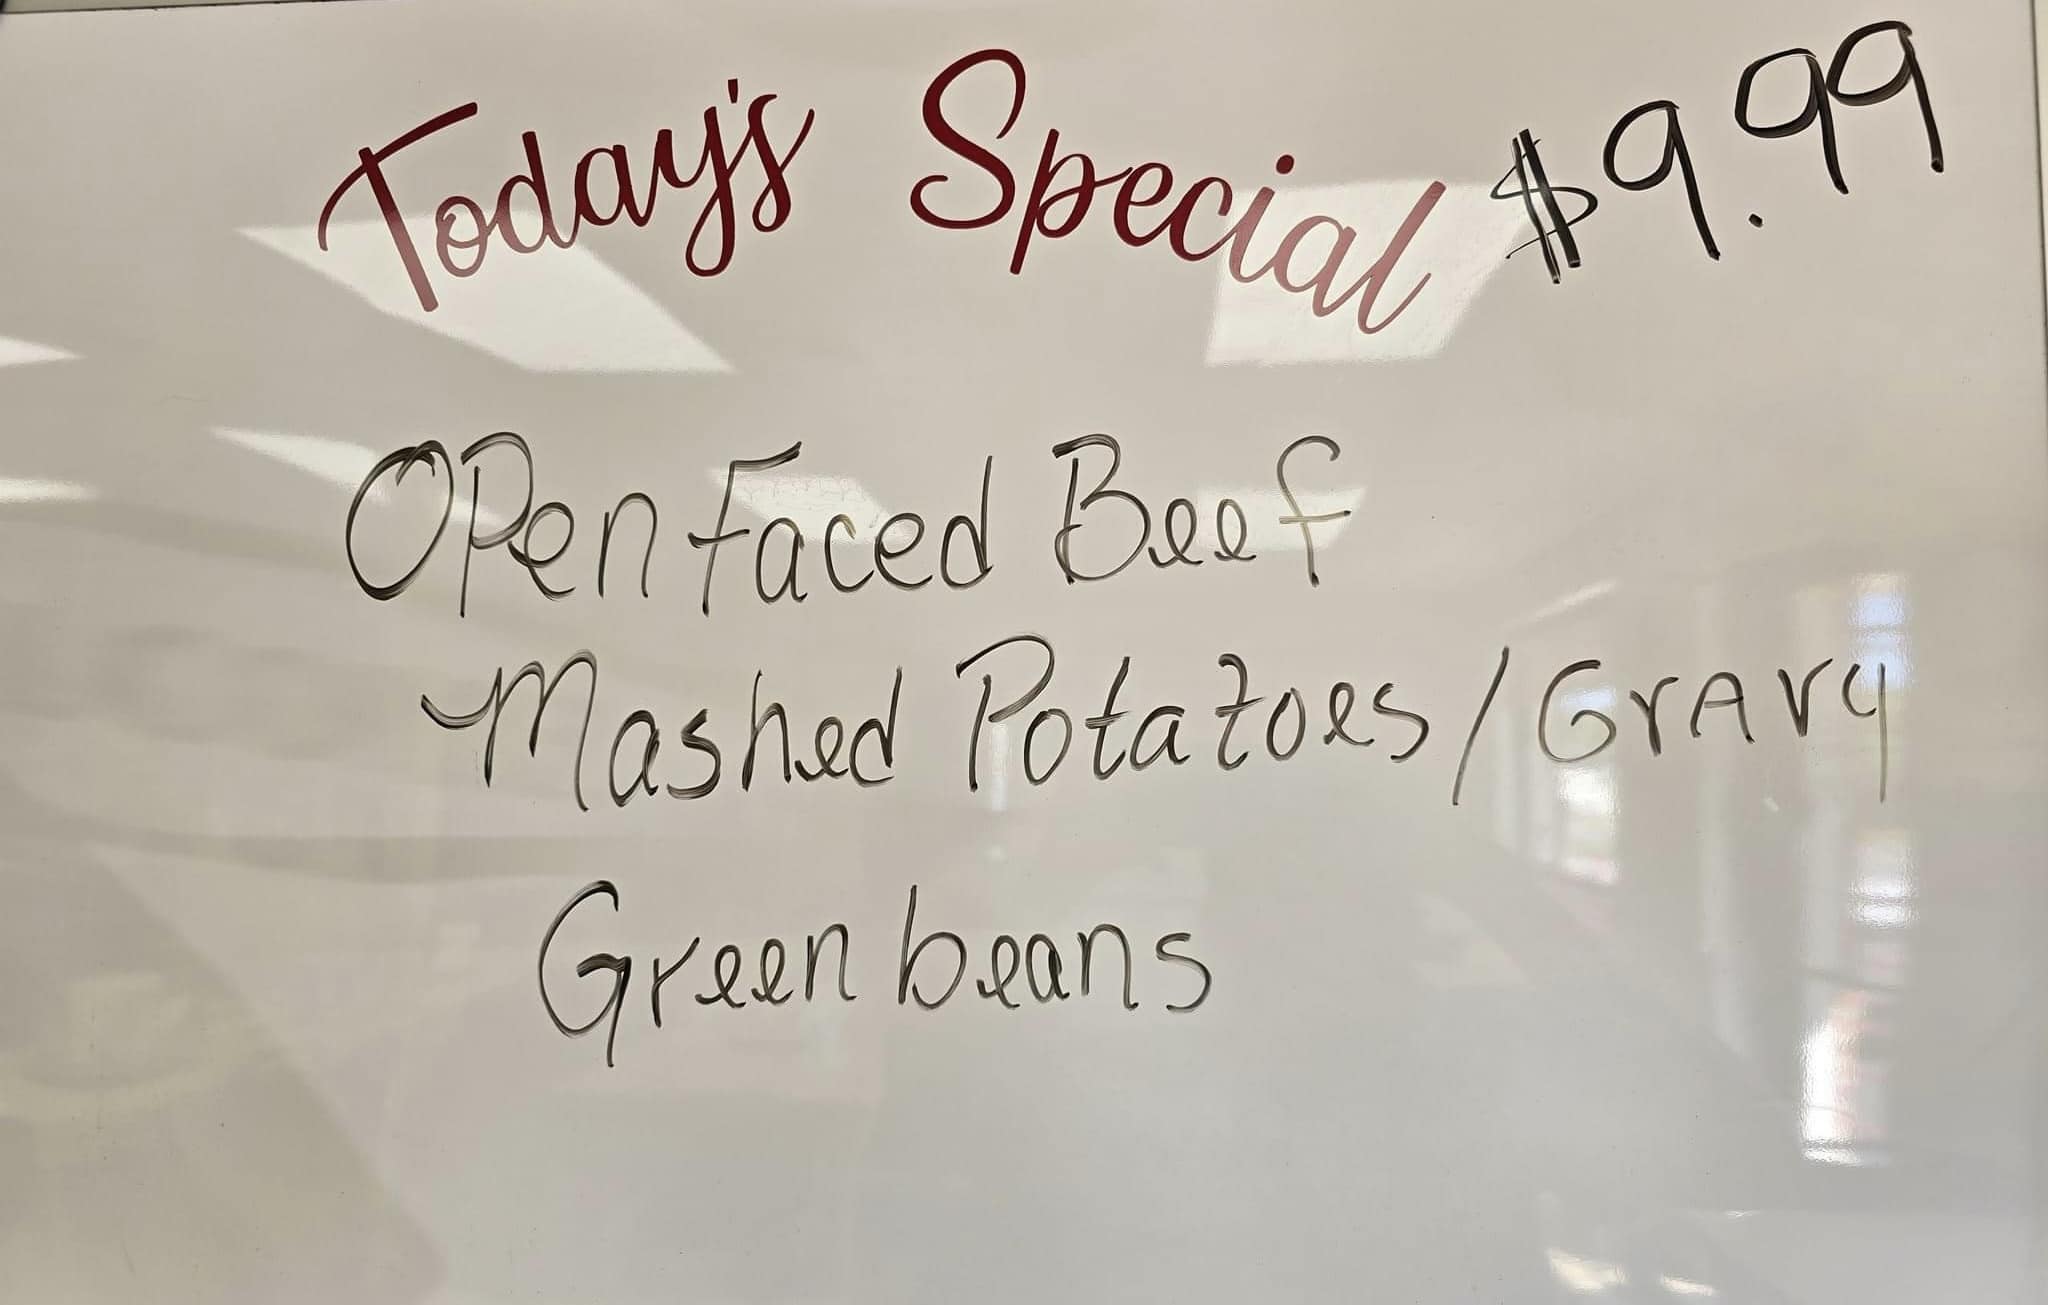 Today's Special $9.99
Open Faced Beef
Mashed Potatoes/Gravy
Green beans